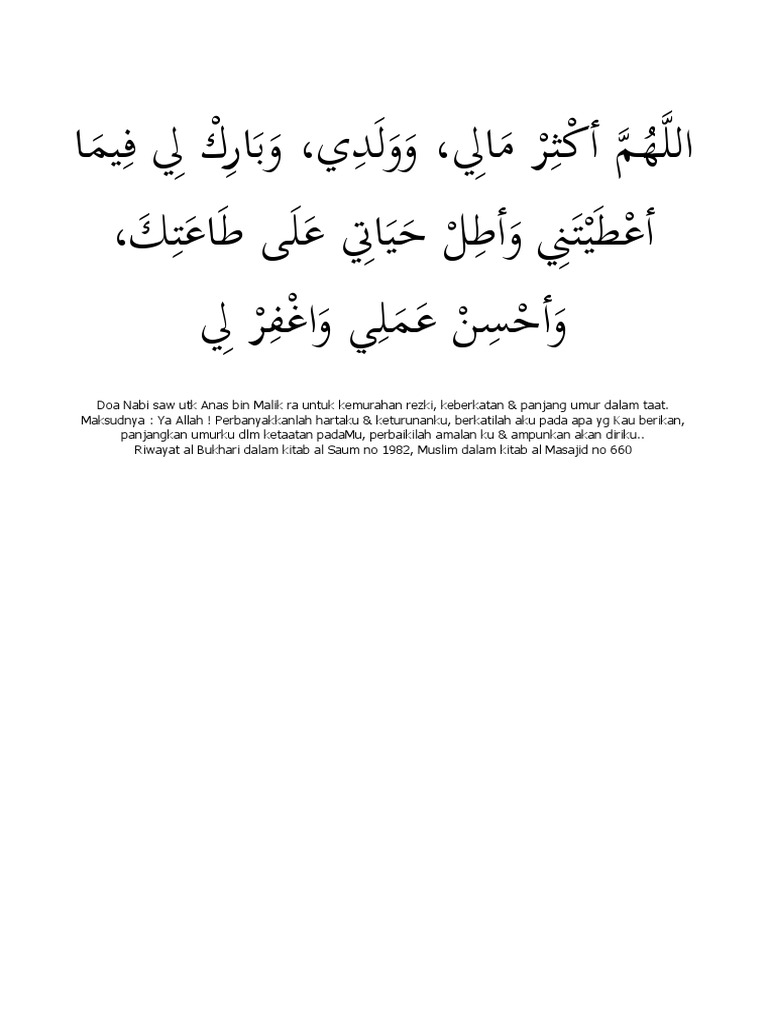 اللَّهُمَّ أكْثِرْ مَالِي، وَوَلَدِي، وَبَارِكْ لِي فِيمَا
أعْطَيْتَنِي وَأطِلْ حَيَاتِي عَلَى طَاعَتِكَ،
وَأحْسِنْ عَمَلِي وَاغْفِرْ لِي
Doa Nabi saw utk Anas bin Malik ra untuk kemurahan rezki, keberkatan & panjang umur dalam taat.
Maksudnya : Ya Allah ! Perbanyakkanlah hartaku & keturunanku, berkatilah aku pada apa yg Kau berikan,
panjangkan umurku dlm ketaatan padaMu, perbaikilah amalan ku & ampunkan akan diriku..
Riwayat al Bukhari dalam kitab al Saum no 1982, Muslim dalam kitab al Masajid no 660